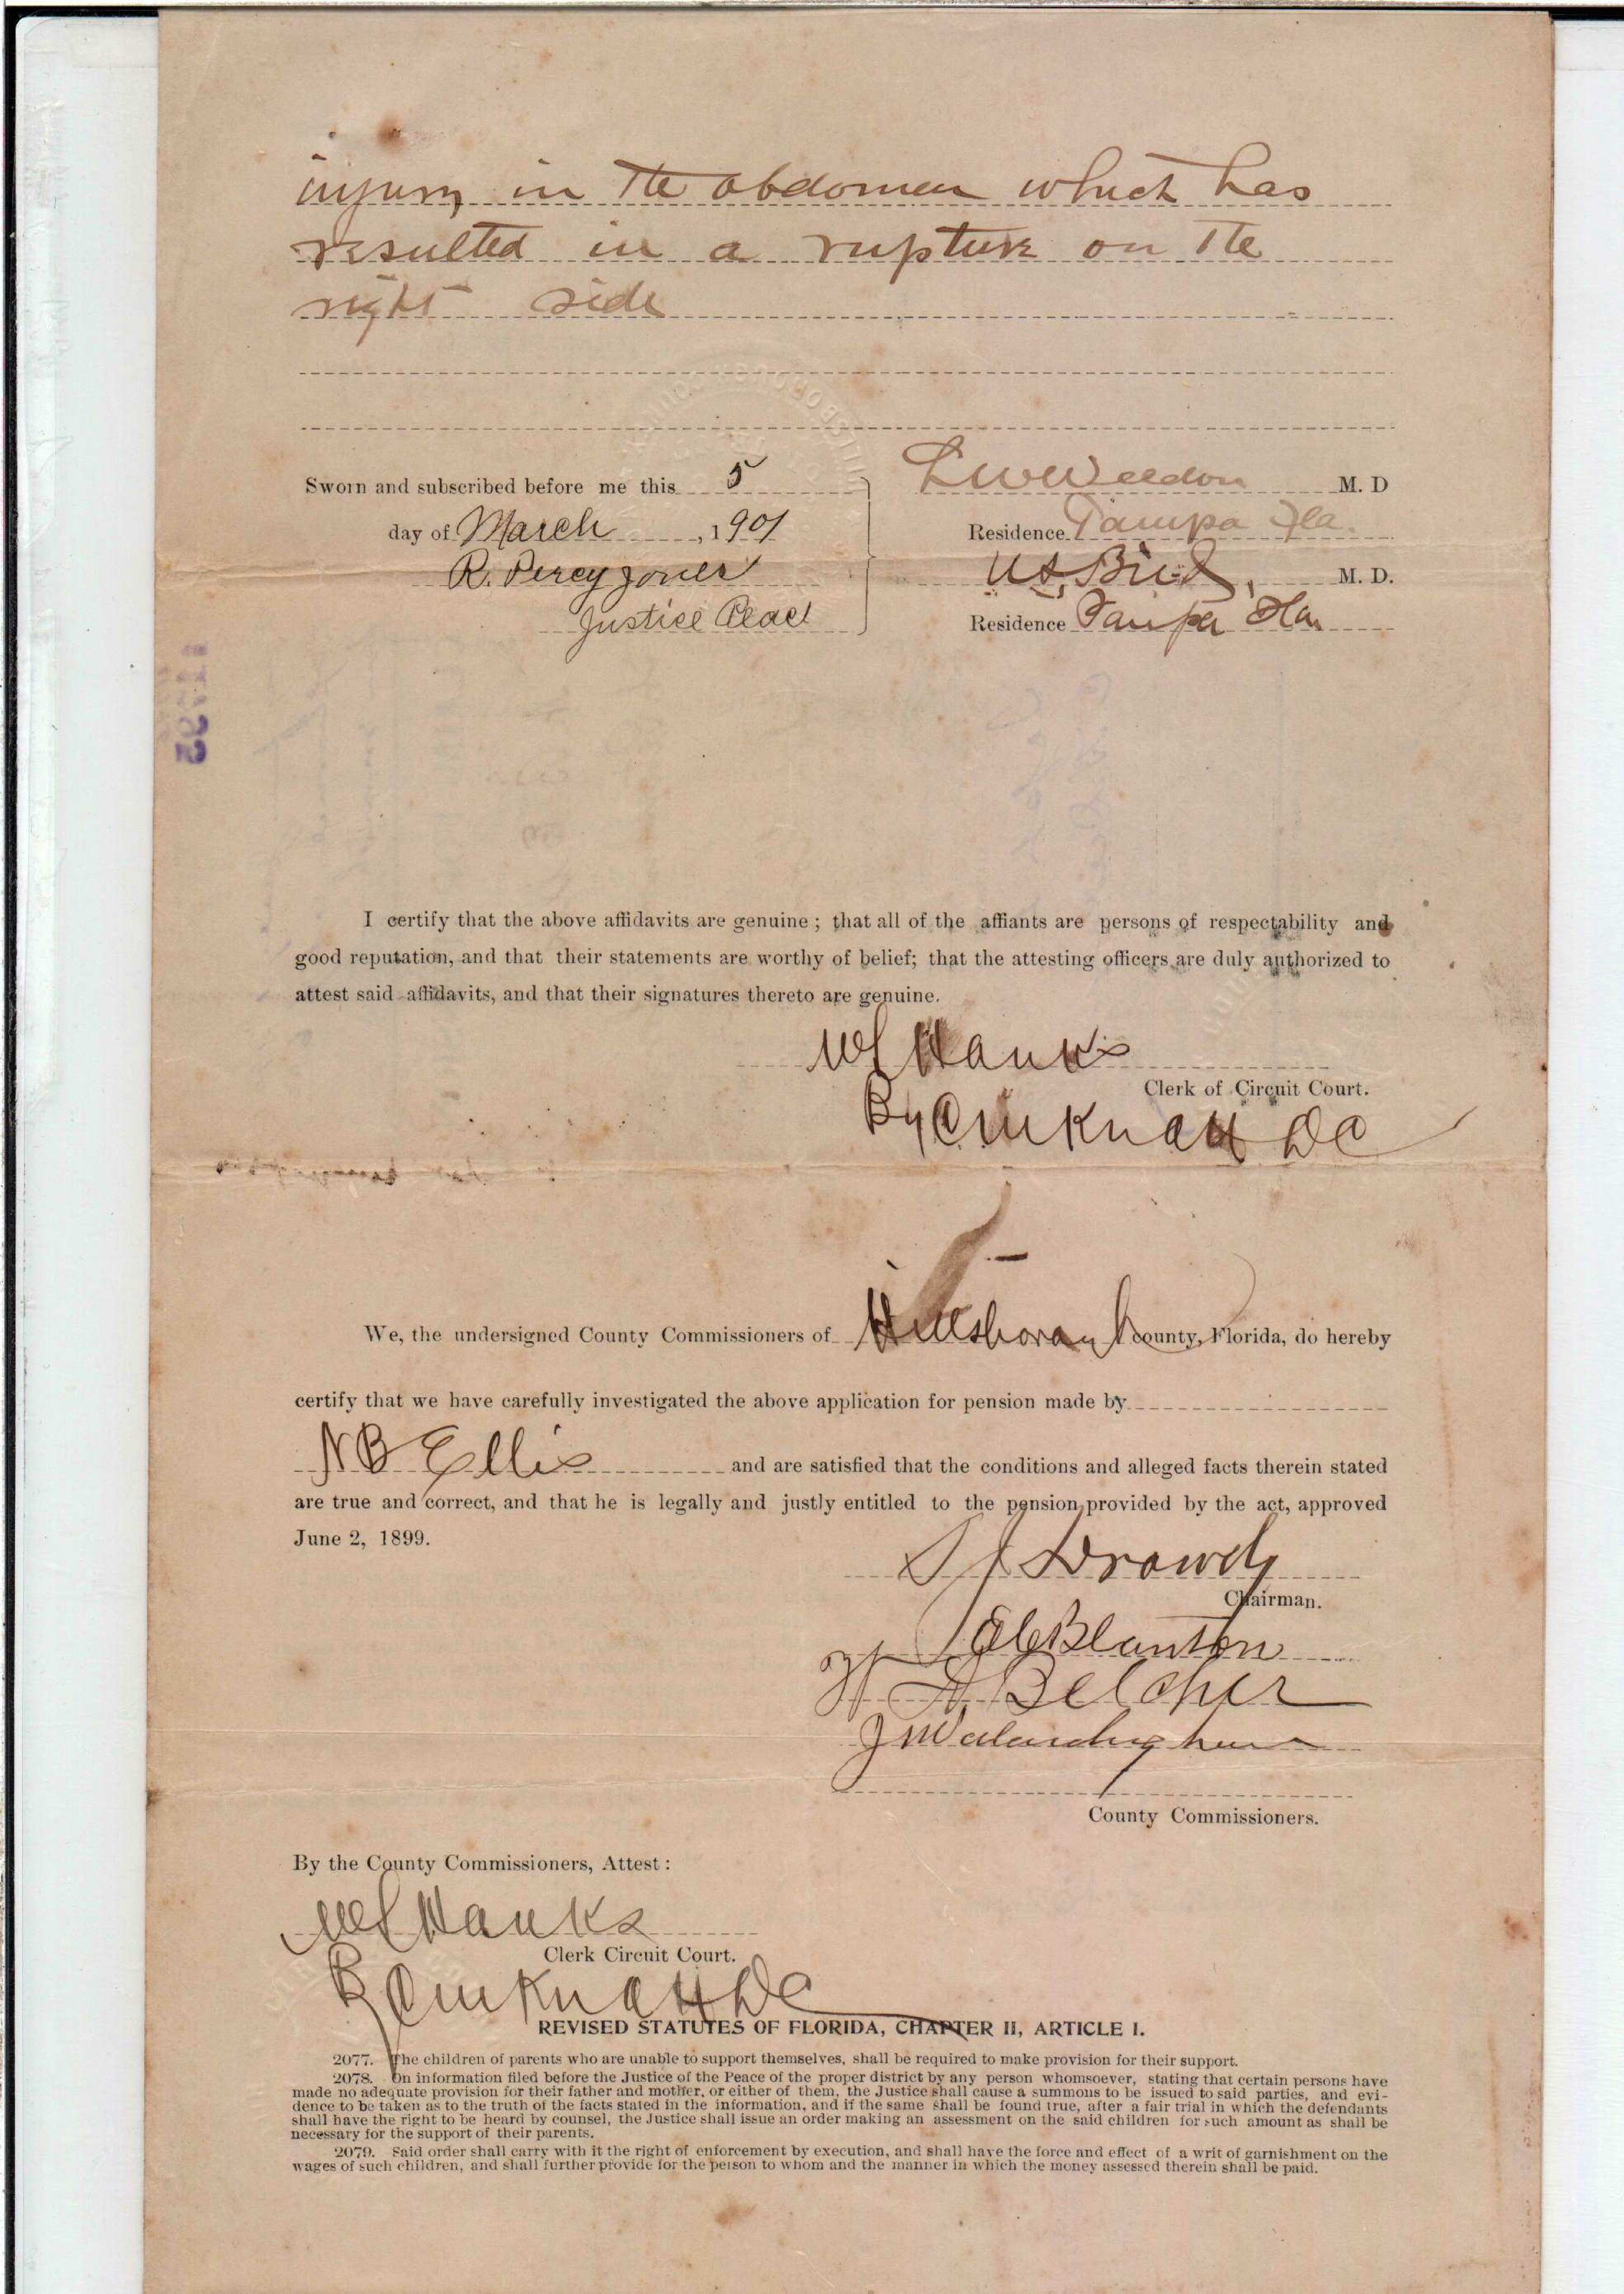 injury in the abdomen which has
resulted in a rupture on the
right side
Sworn and subscribed before me this 5
day of March, 1901
R. Percy Jones
Justice Peace
L W Weedon M. D
Residence Tampa Fla.
Bird, M. D.
Residence Tampa Fla
I certify that the above affidavits are genuine; that all of the affiants are persons of respectability and
good reputation, and that their statements are worthy of belief; that the attesting officers are duly authorized to
attest said affidavits, and that their signatures thereto are genuine.
Hanks
Clerk of Circuit Court.
By C M Knott DC
We, the undersigned County Commissioners of Hillsborough county, Florida, do hereby
certify that we have carefully investigated the above application for pension made by
N B Ellis and are satisfied that the conditions and alleged facts therein stated
are true and correct, and that he is legally and justly entitled to the pension provided by the act, approved
June 2, 1899.
S J Drawdy
Chairman.
Blanton
Belcher
J W
County Commissioners.
By the County Commissioners, Attest:
Hanks
Clerk Circuit Court.
By C M Knott DC
REVISED STATUTES OF FLORIDA, CHAPTER II, ARTICLE I.
2077. The children of parents who are unable to support themselves, shall be required to make provision for their support.
2078. On information filed before the Justice of the Peace of the proper district by any person whomsoever, stating that certain persons have
made no adequate provision for their father and mother, or either of them, the Justice shall cause a summons to be issued to said parties, and evi-
dence to be taken as to the truth of the facts stated in the information, and if the same shall be found true, after a fair trial in which the defendants
shall have the right to be heard by counsel, the Justice shall issue an order making an assessment on the said children for such amount as shall be
necessary for the support of their parents.
2079. Said order shall carry with it the right of enforcement by execution, and shall have the force and effect of a writ of garnishment on the
wages of such children, and shall further provide for the person to whom and the manner in which the money assessed therein shall be paid.